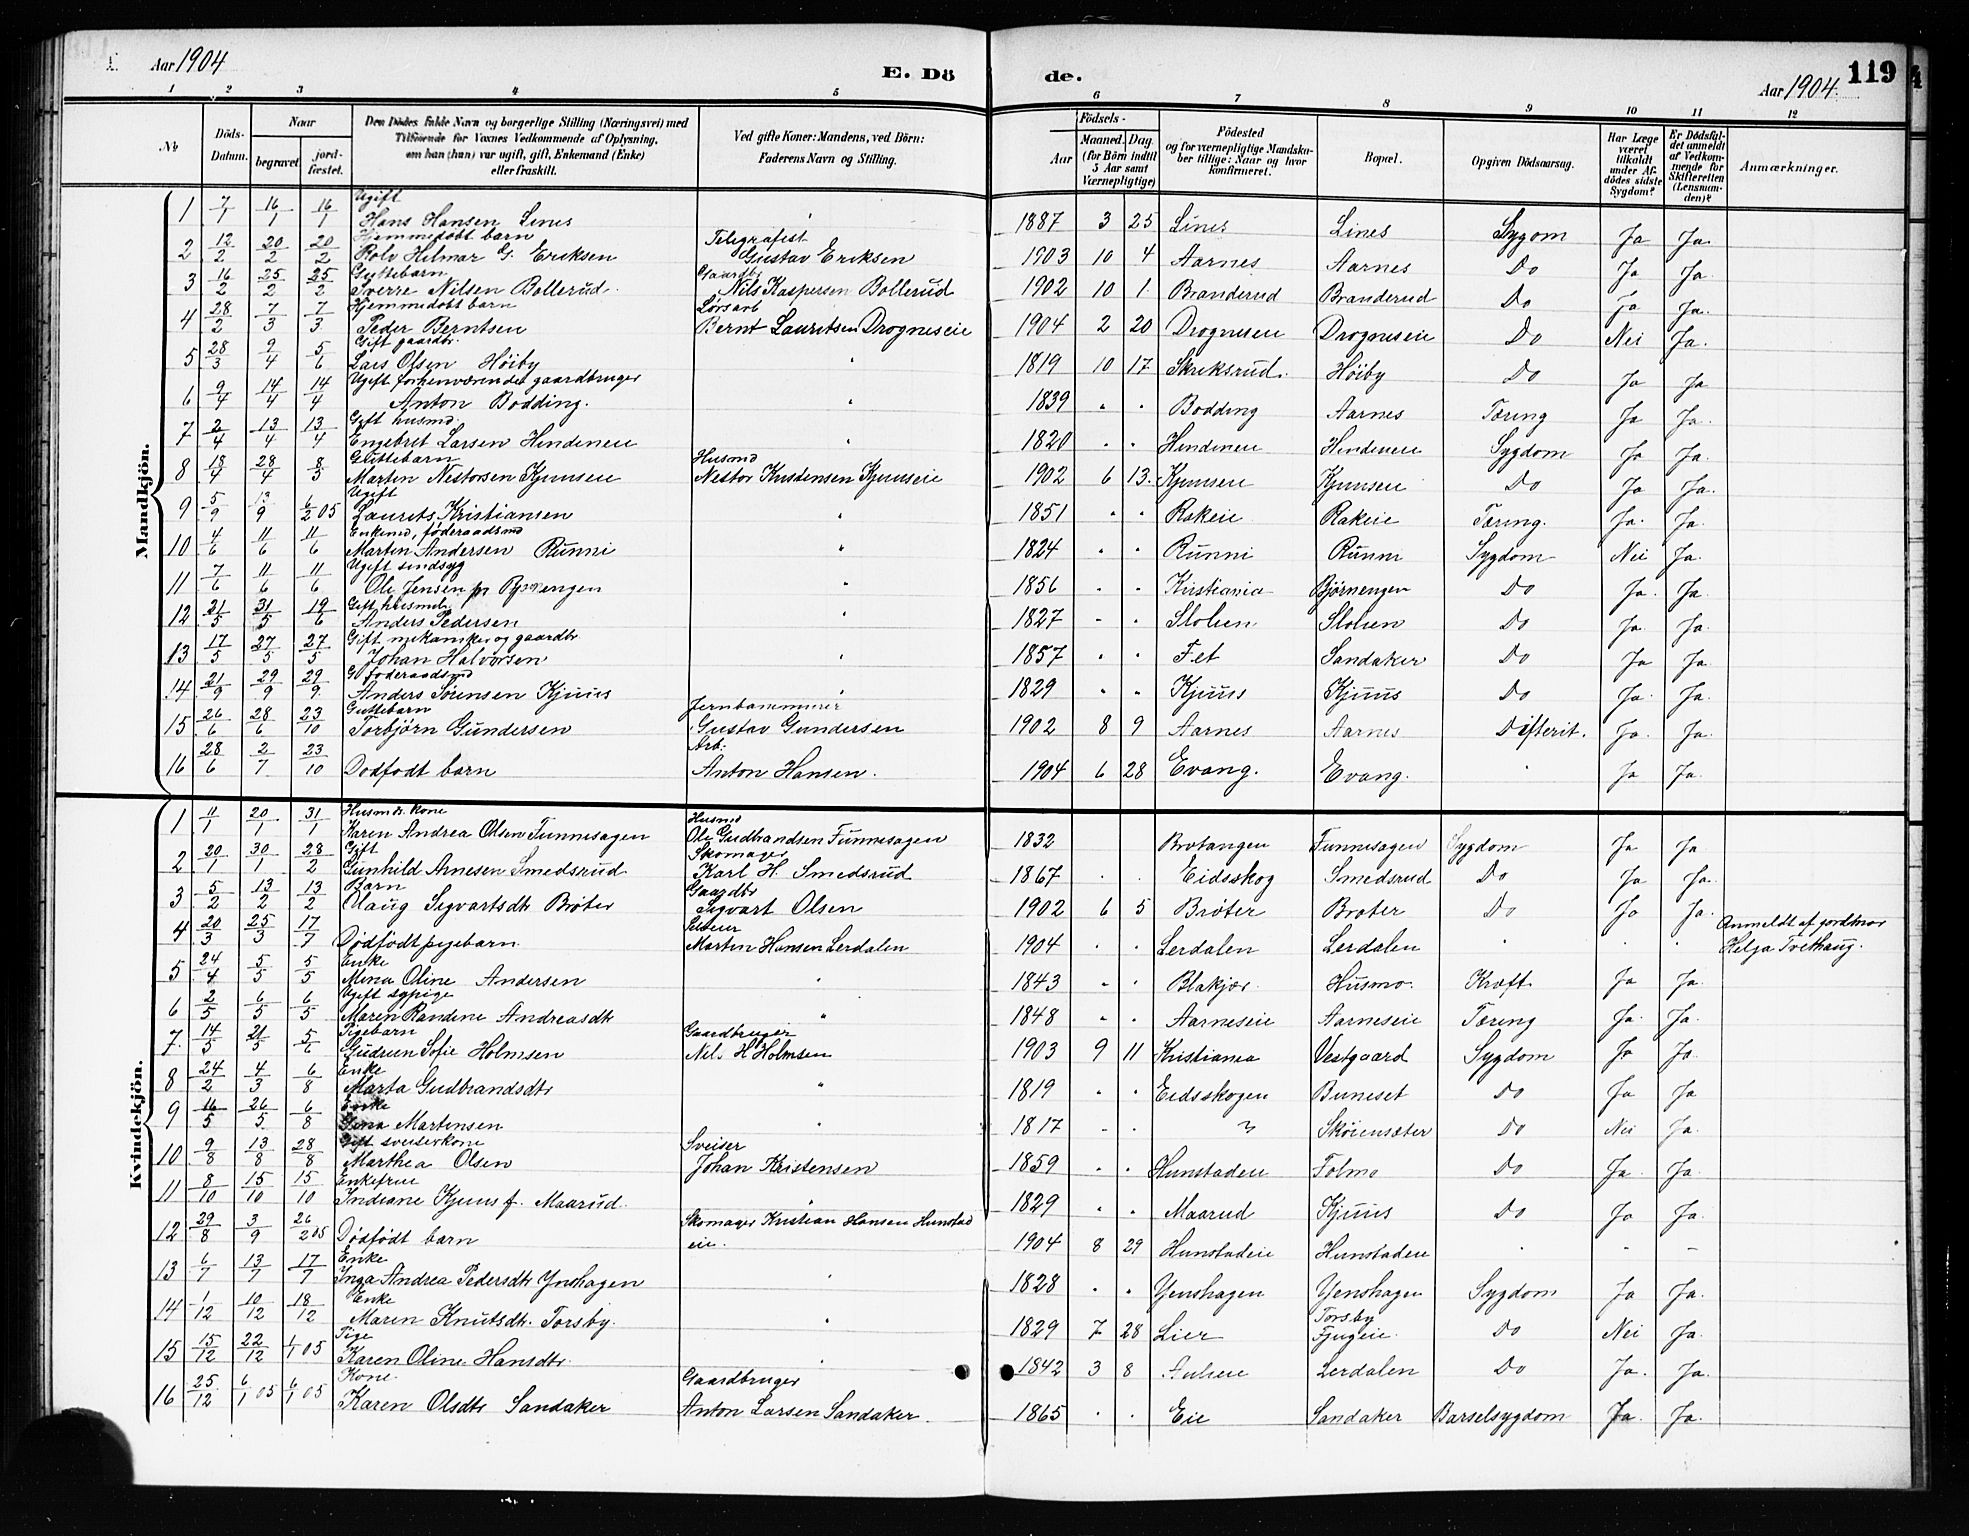 Aar 1904
E. Dö
de.
Aar 1904.
119
1 2 3 4 5 6 7 8 9 10 11 12
No
Döds-Datum.
Naar
begravet.
jord-fæstet.
Den Dödes fulde Navn og borgerlige Stilling (Næringsvei) med
Tilföiende for Voxnes Vedkommende af Oplysning,
om han (hun) var ugift, gift, Enkemand (Enke)
eller fraskilt.
Ved gifte Koner: Mandens, ved Börn:
Faderens Navn og Stilling.
Födsels-
Aar
Maaned. Dag
(for Börn indtil
5 Aar samt
Værnepligtige)
Födested
og for værnepligtige Mandska-
ber tillige: Naar og hvor
konfirmeret.
Bopæl.
Opgiven Dödsaarsag.
Har Læge
været
tilkaldt
under Af-
dödes sidste
Sygdom?
Er Dödsfal-
det anmeldt
af Vedkom-
mende for
Skifteretten
(Lensman-
den)?
Anmærkninger.
Mandkjön.
1 7/1 16/1 16/1 Ugift Hans Hansen Lines 1887 3 25 Lines Lines Sygdom Ja Ja.
2 12/2 20/2 20/2 Hjemmedøbt barn Rolv Hilmar G. Eriksen Telegrafist Gustav Eriksen 1903 10 4 Aarnes Aarnes Do Ja Ja.
3 16/2 25/2 25/2 Guttebarn Sverre Nilsen Bollerud Gaardbr Nils Kaspersen Bollerud 1902 10 1 Branderud Branderud Do Ja Ja.
4 28/2 7/3 7/3 Hjemmedøbt barn Peder Berntsen Løsarb Bernt Lauritsen Drogneseie 1904 2 20 Drogneseie Drogneseie Do Nei Ja.
5 28/3 9/4 5/6 Gift gaardbr. Lars Olsen Höiby " 1819 10 17 Skriksrud. Høiby Do Ja Ja
6 9/4 14/4 14/4 Ugift forhenværende gaardbruger Anton Bodding. " 1839 " " Bodding Aarnes Tæring Ja Ja.
7 2/4 13/4 13/4 Gift husmd. Engebret Larsen Hendeneie " 1820 " " Hendeneie Hendeneie Sygdom Ja Ja.
8 18/4 28/4 8/3 Guttebarn Martin Nestorsen Kjuuseie Husmd Nestor Kristensen Kjuuseie 1902 6 13. Kjuuseie Kjuuseie Do Ja Ja.
9 5/9 13/9 6/2 05 Ugift Laurits Kristiansen " 1851 " " Rakeie Rakeie Tæring. Ja. Ja.
10 4/6 11/6 11/6 Enkemd, føderaadsmd Martin Andersen Runni " 1824 " " Runni Runni Sygdom Nei Ja.
11 7/6 11/6 11/6 Ugift sindsyg Ole Jensen pr Bjørnengen " 1856 " " Kristiania Bjørnengen Do Ja. Ja.
12 21/5 31/5 19/6 Gift husmd. Anders Pedersen " 1827 " " Stolien Stolien Do Ja. Ja.
13 17/5 27/5 27/5 Gift mekaniker og gaardbr Johan Halvorsen " 1857 " " Fet Sandaker Do Ja Ja.
14 21/9 29/9 29/9 G føderaadsmd Anders Sörensen Kjuus " 1829 " " Kjuus Kjuus Do Ja. Ja.
15 26/6 28/6 23/10 Guttebarn Torbjörn Gundersen Jernbane Gustav Gundersen 1902 8 9 Aarnes Aarnes Difterit. Ja. Ja.
16 28/6 2/7 23/10 Dødfødt barn Arb: Anton Hansen. 1904 6 28 Evang. Evang. " Ja Ja.
Kvindekjön.
1 11/1 20/1 31/1 Husmds kone Karen Andrea Olsen Funnesagen Husmd Ole Gudbrandsen Funnesagen 1832 Brotangen Funnesagen Sygdom Ja Ja
2 20/1 30/1 28/2 Gift Gunhild Arnesen Smedsrud Skomager Karl H. Smedsrud 1867 " " Eidsskog Smedsrud Do Ja Ja.
3 5/2 13/2 13/2 Barn Olaug Sigvartsdtr Brøter Gaardbr Sigvart Olsen 1902 6 5 Brøter Brøter Do Ja Ja.
4 20/3 25/3 17/7 Dødfødt pigebarn. Martin Hansen Lerdalen 1904 " " Lerdalen Lerdalen " " " Anmeldt af jordmor Helga Tvethaug.
5 24/4 5/5 5/5 Enke Mina Oline Andersen " 1843 " " Blakjær. Husmo. Kræft. Ja Ja.
6 2/5 6/5 6/5 Ugift sypige Maren Randine Andreasdtr " 1848 " " Aarneseie Aarneseie Tæring Ja. Ja.
7 14/5 21/5 5/6 Pigebarn Gudrun Sofie Holmsen Gaardbruger Nils H Holmsen 1903 9 11 Kristiania Vestgaard Sygdom Ja Ja.
8 24/2 4/3 6/8 Enke Marta Gudbrandsdtr " 1819 " " Eidsskogen Buneset Do Ja Ja
9 16/5 26/5 6/8 Enke Gina Martinsen " 1817 " " Skøiensæter Do Nei Ja.
10 9/8 13/8 28/8 Gift sveiserkone Marthea Olsen Sveiser Johan Kristensen 1859 " " Hunstadeie Folmo Do Ja. Ja.
11 8/10 15/10 15/10 Enkefrue Indiane Kjuus f. Maarud. " 1829 " " Maarud Kjuus Do Ja Ja.
12 29/8 3/9 26/2 05 Dødfødt barn Skomager Kristian Hansen Hunstad eie. 1904 8 29 Hunstadeie Hunstadeie " " –
13 6/7 13/7 17/7 Enke Inga Andrea Pedersdtr Ynshagen " 1828 " " Yenshagen Yenshagen Sygdom Ja Ja.
14 1/12 10/12 18/12 Enke Maren Knutsdtr. Torsby. " 1829 7 28 Lier Torsby Fjugeie. Do Nei Ja.
15 15/12 22/12 1/1 05 Pige Karen Oline Hansdtr. " 1842 3 8 Lerdalen Do Ja. Ja.
16 25/12 6/1 05 6/1 05 Kone. Karen Olsdtr Sandaker Gaardbruger Anton Larsen Sandaker. 1865 " " Eie Sandaker Barselsygdom Ja. Ja.